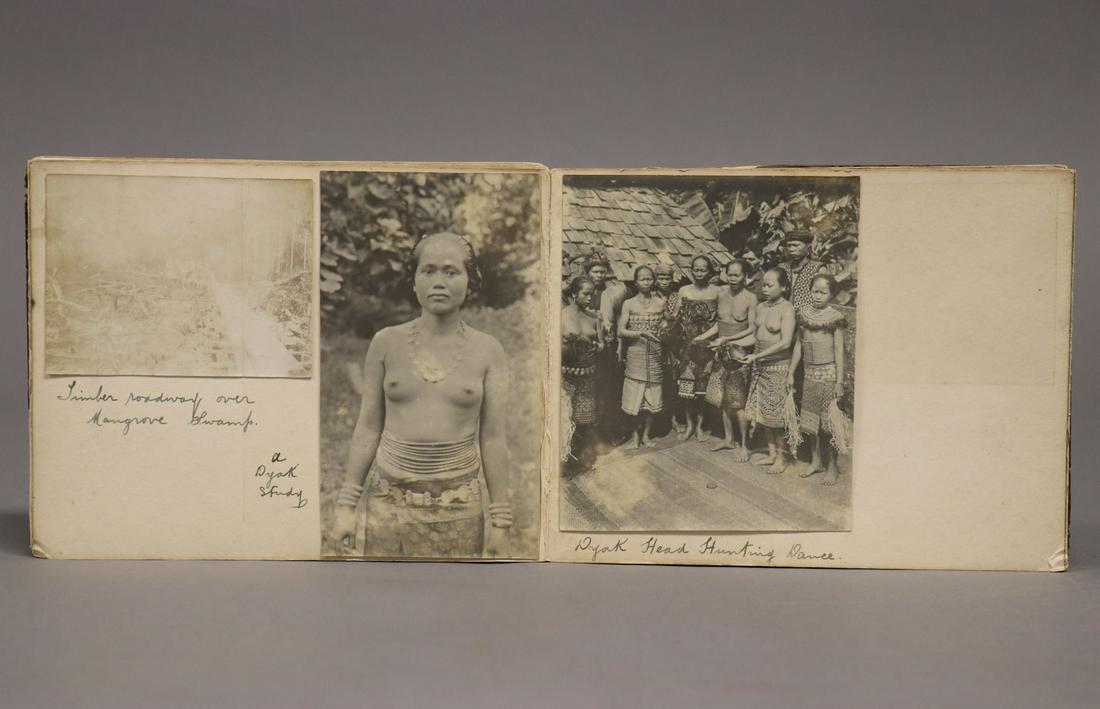 Timber roadway over
Mangrove Swamp.
a
Dyak
Study
Dyak Head Hunting Dance.